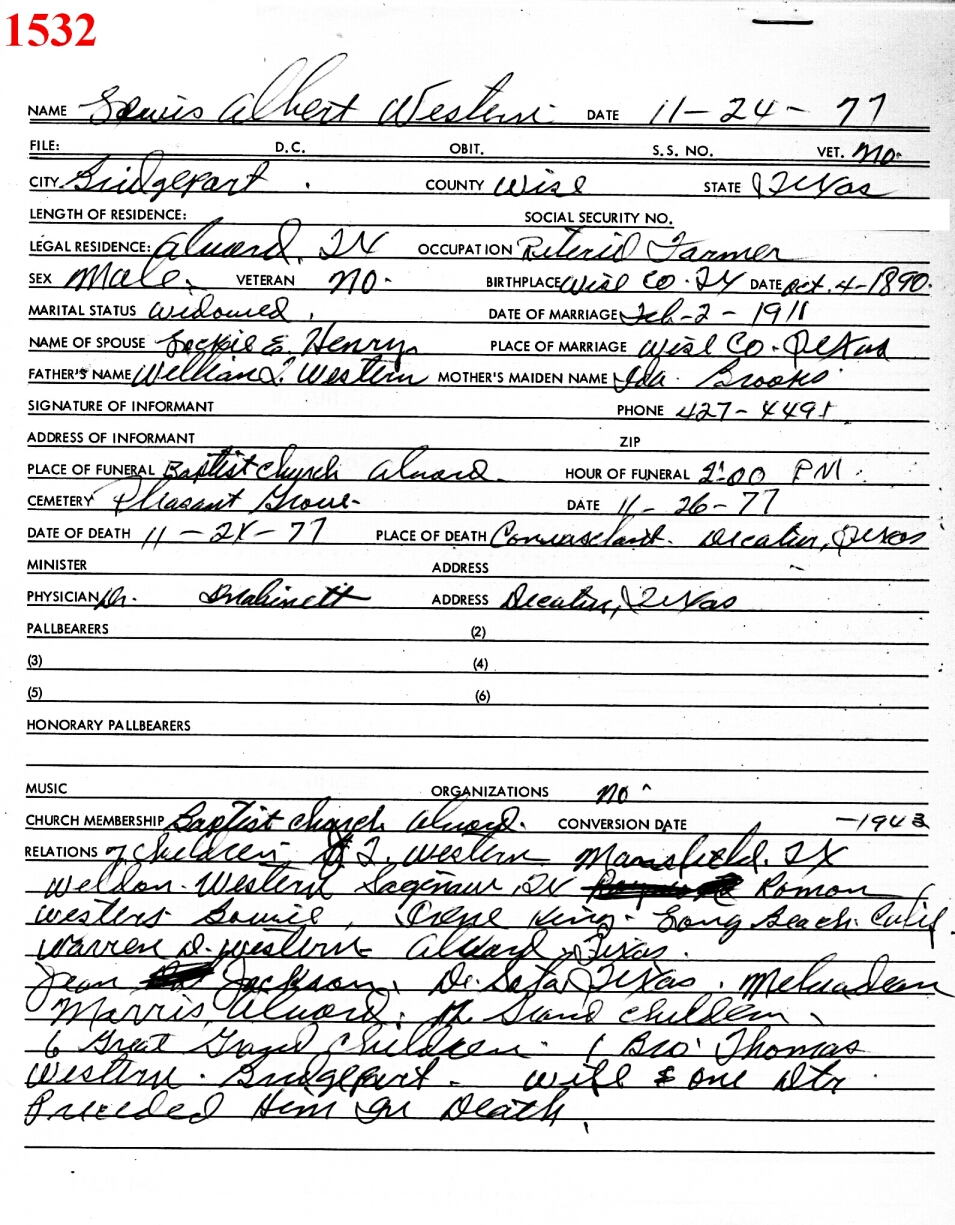 1532
NAME Lewis Albert Western DATE 11-24-77
FILE: D.C. OBIT. S.S. NO. VET. no.
CITY Bridgeport. COUNTY Wise STATE Texas
LENGTH OF RESIDENCE: SOCIAL SECURITY NO.
LEGAL RESIDENCE: Alvord, TX OCCUPATION Retired Farmer
SEX Male. VETERAN no. BIRTHPLACE Wise Co. TX DATE Oct. 4-1890.
MARITAL STATUS Widowed. DATE OF MARRIAGE Feb-2-1911
NAME OF SPOUSE E. Henry. PLACE OF MARRIAGE Wise Co. Texas
FATHER'S NAME William L. Western MOTHER'S MAIDEN NAME Ida. Brooks
SIGNATURE OF INFORMANT PHONE 427-4491
ADDRESS OF INFORMANT ZIP
PLACE OF FUNERAL Baptist Church Alvord. HOUR OF FUNERAL 2:00 PM.
CEMETERY Pleasant Grove. DATE 11-26-77
DATE OF DEATH 11-24-77 PLACE OF DEATH Decatur, Texas
MINISTER ADDRESS
PHYSICIAN Dr. ADDRESS Decatur, Texas
PALLBEARERS (2)
(3) (4)
(5) (6)
HONORARY PALLBEARERS
MUSIC ORGANIZATIONS no
CHURCH MEMBERSHIP Baptist Church Alvord. CONVERSION DATE -1943
RELATIONS 7 Children, Western Mansfield. TX
Weldon. Western Saginaw, TX Romon
Western Bowie, Irene King- Long Beach. Calif
Warren D. Western- Alvord, Texas.
Jean Jackson, De Soto, Texas. Melvadean
Morris, Alvord. Grand Children.
6 Great Grand Children. 1 Bro. Thomas
Western. Bridgeport. Wife & one Dtr.
Preceded Him In Death.